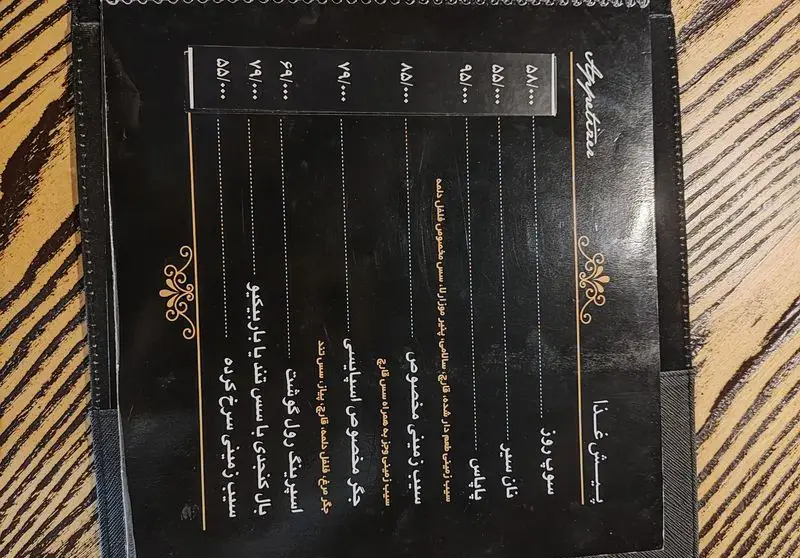 Appetizer پیش غذا
سوپ روز ۵۸/۰۰۰
نان سیر ۵۵/۰۰۰
پاپاس ۹۵/۰۰۰
سیب زمینی طعم دار شده، قارچ، سالامی، پنیر موزارلا، سس مخصوص فلفل دلمه
سیب زمینی مخصوص ۸۵/۰۰۰
سیب زمینی وجز به همراه سس قارچ
جگر مخصوص اسپایسی ۷۹/۰۰۰
جگر مرغ، فلفل دلمه، قارچ، پیاز، سس تند
اسپرینگ رول گوشت ۶۹/۰۰۰
بال کنتاکی با سس تند یا باربیکیو ۷۹/۰۰۰
سیب زمینی سرخ کرده ۵۵/۰۰۰